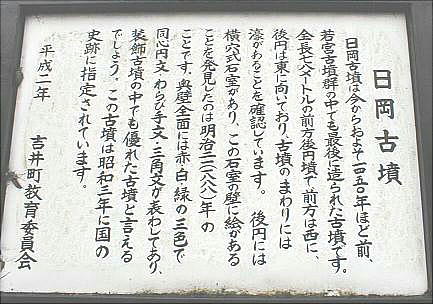 日岡古墳
日岡古墳は今からおよそ一四五〇年ほど前、
若宮古墳群の中でも最後に造られた古墳です。
全長七八メートルの前方後円墳で前方は西に、
後円は東に向いており、古墳のまわりには
濠があることを確認しています。 後円には
横穴式石室があり、この石室の壁に絵がある
ことを発見したのは明治二一(一八八八)年の
ことです。奥壁全面には赤・白・緑の三色で
同心円文・わらび手文・三角文が表わしてあり、
装飾古墳の中でも優れた古墳と言える
でしょう。この古墳は昭和三年に国の
史跡に指定されています。
平成二年 吉井町教育委員会